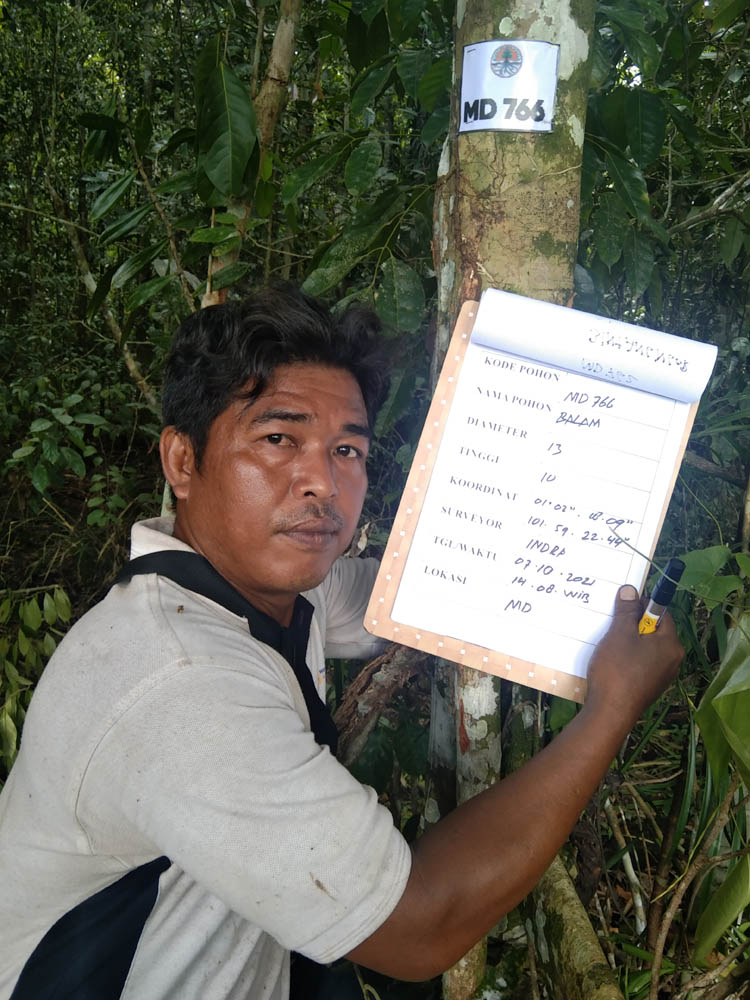 MD 766
KODE POHON MD 766
NAMA POHON BALAM
DIAMETER 13
TINGGI 10
KOORDINAT 01° 02" 18.09"
101. 59. 22.44"
SURVEYOR INDRA
TGL/WAKTU 07.10.2021
14.08. WIB
LOKASI MD